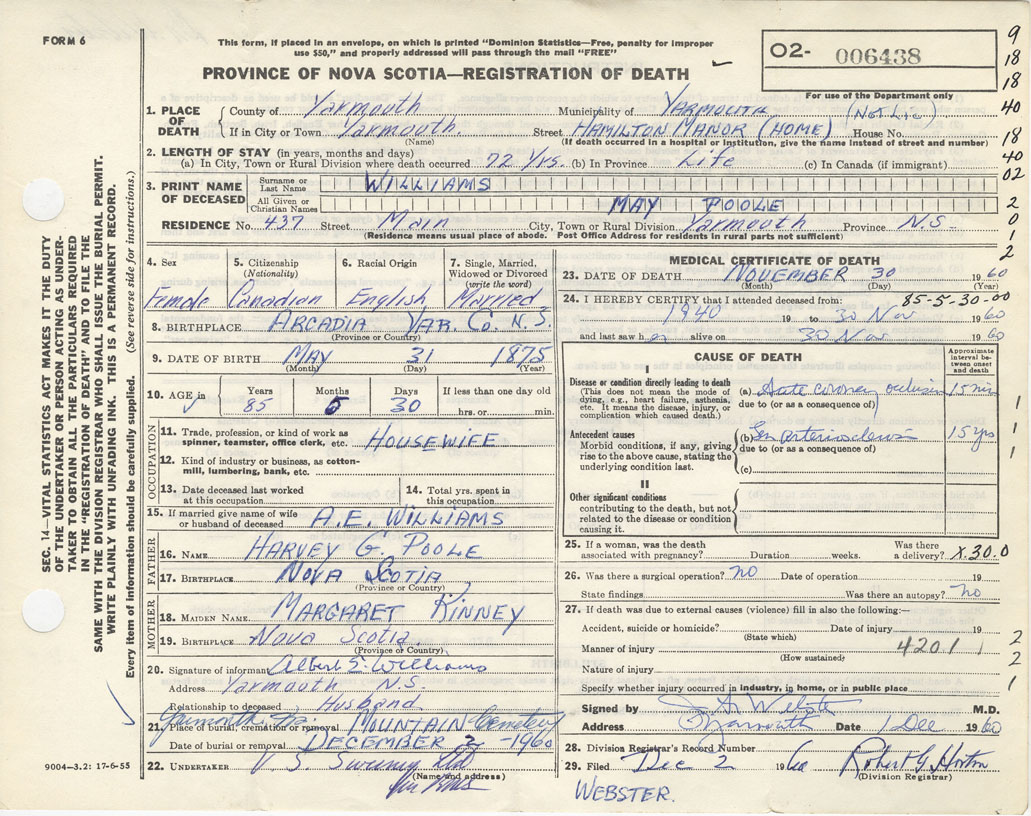 FORM 6
This form, if placed in an envelope, on which is printed "Dominion Statistics—Free, penalty for improper
use $50," and properly addressed will pass through the mail "FREE"
O2- 006438
For use of the Department only
PROVINCE OF NOVA SCOTIA—REGISTRATION OF DEATH
1. PLACE OF DEATH County of Yarmouth Municipality of YARMOUTH
If in City or Town Yarmouth. Street HAMILTON MANOR (HOME) House No.
(Name) (If death occurred in a hospital or institution, give the name instead of street and number)
2. LENGTH OF STAY (in years, months and days)
(a) In City, Town or Rural Division where death occurred 72 Yrs. (b) In Province Life (c) In Canada (if immigrant)
3. PRINT NAME OF DECEASED Surname or Last Name WILLIAMS
All Given or Christian Names MAY POOLE
RESIDENCE No. 437 Street Main City, Town or Rural Division Yarmouth Province N.S.
(Residence means usual place of abode. Post Office Address for residents in rural parts not sufficient)
4. Sex Female
5. Citizenship (Nationality) Canadian
6. Racial Origin English
7. Single, Married, Widowed or Divorced (write the word) Married
8. BIRTHPLACE ARCADIA YAR. CO. N.S.
(Province or Country)
9. DATE OF BIRTH MAY 31 1875
(Month) (Day) (Year)
10. AGE in Years 85 Months 5 Days 30 If less than one day old hrs. or min.
OCCUPATION
11. Trade, profession, or kind of work as spinner, teamster, office clerk, etc. HOUSEWIFE
12. Kind of industry or business, as cotton-mill, lumbering, bank, etc.
13. Date deceased last worked at this occupation
14. Total yrs. spent in this occupation
15. If married give name of wife or husband of deceased A.E. WILLIAMS
FATHER
16. NAME HARVEY G. POOLE
17. BIRTHPLACE NOVA SCOTIA
(Province or Country)
MOTHER
18. MAIDEN NAME MARGARET KINNEY
19. BIRTHPLACE Nova Scotia
(Province or Country)
20. Signature of informant Albert E. Williams
Address Yarmouth N.S.
Relationship to deceased Husband
21. Place of burial, cremation or removal Yarmouth MOUNTAIN Cemetery
Date of burial or removal DECEMBER 2 -1960
22. UNDERTAKER V.S. Sweeny Ltd
(Name and address)
MEDICAL CERTIFICATE OF DEATH
23. DATE OF DEATH NOVEMBER 30 1960
(Month) (Day) (Year)
85-5-30-00
24. I HEREBY CERTIFY that I attended deceased from:
1940 19 to 30 Nov 1960
and last saw her alive on 30 Nov 1960
CAUSE OF DEATH
Approximate interval between onset and death
I
Disease or condition directly leading to death
(This does not mean the mode of dying, e.g., heart failure, asthenia, etc. It means the disease, injury, or complication which caused death.)
(a) Acute coronary occlusion 15 min
due to (or as a consequence of)
Antecedent causes
Morbid conditions, if any, giving rise to the above cause, stating the underlying condition last.
(b) Gen arteriosclerosis 15 yrs
due to (or as a consequence of)
(c)
II
Other significant conditions
contributing to the death, but not related to the disease or condition causing it.
25. If a woman, was the death associated with pregnancy? Duration weeks. Was there a delivery? X.30.0
26. Was there a surgical operation? no Date of operation 19
State findings Was there an autopsy? no
27. If death was due to external causes (violence) fill in also the following:—
Accident, suicide or homicide? Date of injury 19
(State which)
Manner of injury 420.1
(How sustained)
Nature of injury
Specify whether injury occurred in industry, in home, or in public place
Signed by Webster M.D.
Address Yarmouth Date 1 Dec 1960
28. Division Registrar's Record Number
29. Filed Dec 2 1960 Robert G. Horton
(Division Registrar)
WEBSTER.
9004—3.2: 17-6-55
SEC. 14—VITAL STATISTICS ACT MAKES IT THE DUTY
OF THE UNDERTAKER OR PERSON ACTING AS UNDER-
TAKER TO OBTAIN ALL THE PARTICULARS REQUIRED
IN THE "REGISTRATION OF DEATH" AND TO FILE THE
SAME WITH THE DIVISION REGISTRAR WHO SHALL ISSUE THE BURIAL PERMIT.
WRITE PLAINLY WITH UNFADING INK. THIS IS A PERMANENT RECORD.
Every item of information should be carefully supplied. (See reverse side for instructions.)
9
18
18
40
18
40
02
2
0
1
2
1
1
1
2
2
1